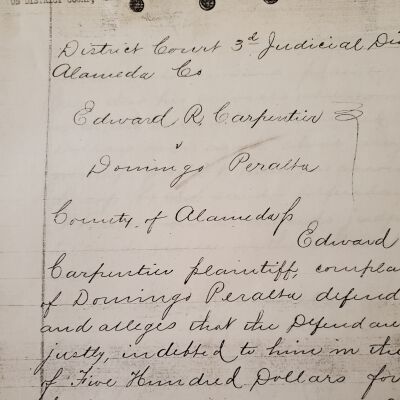 US DISTRICT COURT,
District Court 3d Judicial Dis
Alameda Co
Edward R. Carpentier
v
Domingo Peralta
County of Alameda ss
Edward
Carpentier plaintiff, compla
of Domingo Peralta defend
and alleges that the Defendant
justly, indebted to him in the
of Five Hundred Dollars for